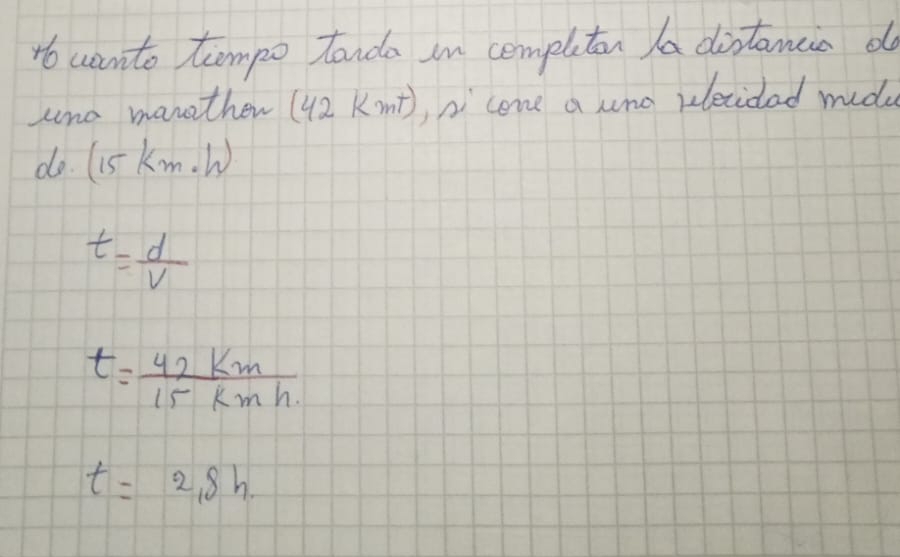 Cuanto tiempo tarda en completar la distancia de
una marathon (42 Kmt), si corre a una velocidad media
de. (15 Km.h)
t = d
V
t = 42 Km
15 Km h.
t = 2,8 h.